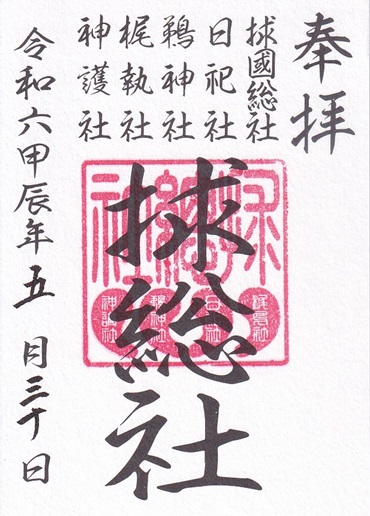 奉拝
捄國総社
日祀社
鵜神社
梶執社
神護社
捄総社
令和六甲辰年五月三十日